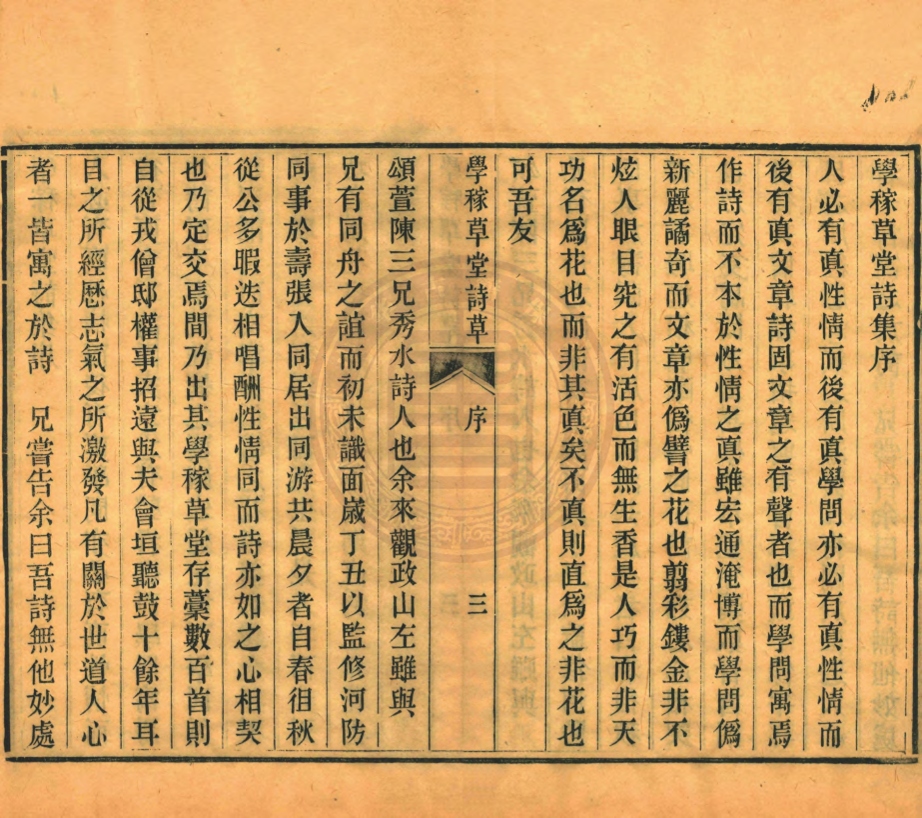 學稼草堂詩集序
人必有眞性情而後有眞學問亦必有眞性情而
後有眞文章詩固文章之有聲者也而學問寓焉
作詩而不本於性情之眞雖宏通淹博而學問僞
新麗譎奇而文章亦僞譬之花也翦彩鏤金非不
炫人眼目究之有活色而無生香是人巧而非天
功名爲花也而非其眞矣不眞則直爲之非花也
可吾友
學稼草堂詩草 序 三
頌萱陳三兄秀水詩人也余來觀政山左雖與
兄有同舟之誼而初未識面歲丁丑以監修河防
同事於壽張入同居出同游共晨夕者自春徂秋
從公多暇迭相唱酬性情同而詩亦如之心相契
也乃定交焉間乃出其學稼草堂存藁數百首則
自從戎僧邸權事招遠與夫會垣聽鼓十餘年耳
目之所經歷志氣之所激發凡有關於世道人心
者一皆寓之於詩 兄嘗告余曰吾詩無他妙處